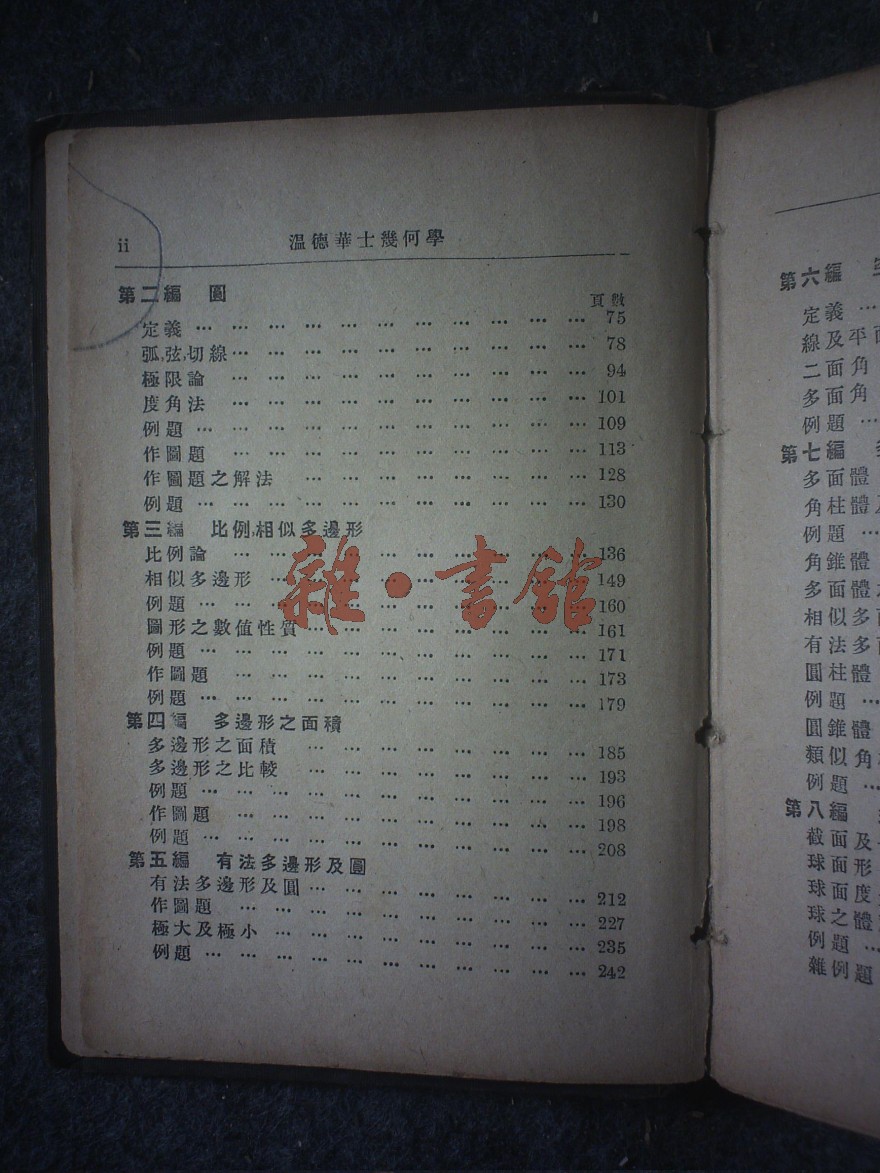 ii 溫德華士幾何學
第二編 圓
頁數
定義 … … … … … … … … … … … 75
弧,弦,切線 … … … … … … … … … … 78
極限論 … … … … … … … … … … 94
度角法 … … … … … … … … … … 101
例題 … … … … … … … … … … … 109
作圖題 … … … … … … … … … … 113
作圖題之解法 … … … … … … … … 128
例題 … … … … … … … … … … … 130
第三編 比例,相似多邊形
比例論 … … … … … … … … … … 136
相似多邊形 … … … … … … … … … 149
例題 … … … … … … … … … … … 160
圖形之數值性質 … … … … … … … … 161
例題 … … … … … … … … … … … 171
作圖題 … … … … … … … … … … 173
例題 … … … … … … … … … … … 179
第四編 多邊形之面積
多邊形之面積 … … … … … … … … 185
多邊形之比較 … … … … … … … … 193
例題 … … … … … … … … … … … 196
作圖題 … … … … … … … … … … 198
例題 … … … … … … … … … … … 208
第五編 有法多邊形及圓
有法多邊形及圓 … … … … … … … … 212
作圖題 … … … … … … … … … … 227
極大及極小 … … … … … … … … … 235
例題 … … … … … … … … … … … 242
雜·書館
第六編
定義 …
線及平面
二面角
多面角
例題 …
第七編
多面體
角柱體及
例題 …
角錐體
多面體之
相似多面
有法多面
圓柱體
例題 …
圓錐體
類似角
例題 …
第八編
截面及
球面形
球面度
球之體
例題 …
雜例題